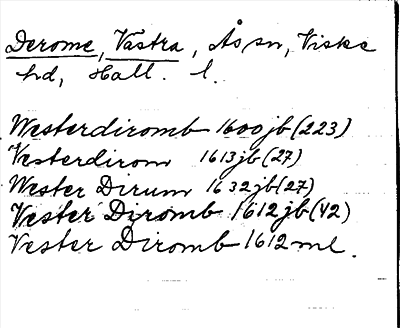 Derome, Västra, Ås sn, Viske
hd, Hall. l.
Westerdiromb 1600 jb (223)
Vesterdirom 1613 jb (27)
Wester Dirum 1632 jb (27)
Vester Diromb 1612 jb (42)
Vester Diromb 1612 ml.